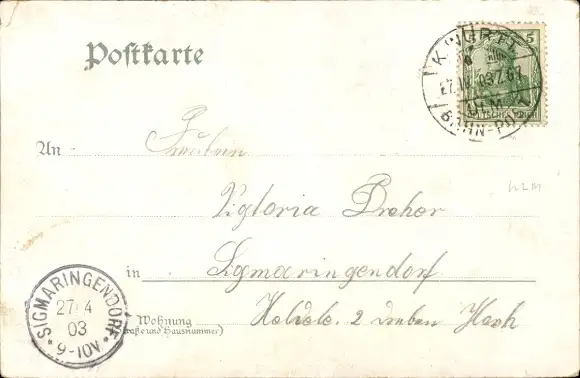 Postkarte
5
K.WÜRTT.
27.IV.03 Z.67
ULM
BAHN-POST
DEUTSCHES REICH
An
Fräulein
Viktoria Dreher
in Sigmaringendorf
SIGMARINGENDORF
27 4
03
9-10V.
Wohnung
(Straße und Hausnummer)
2
ULM